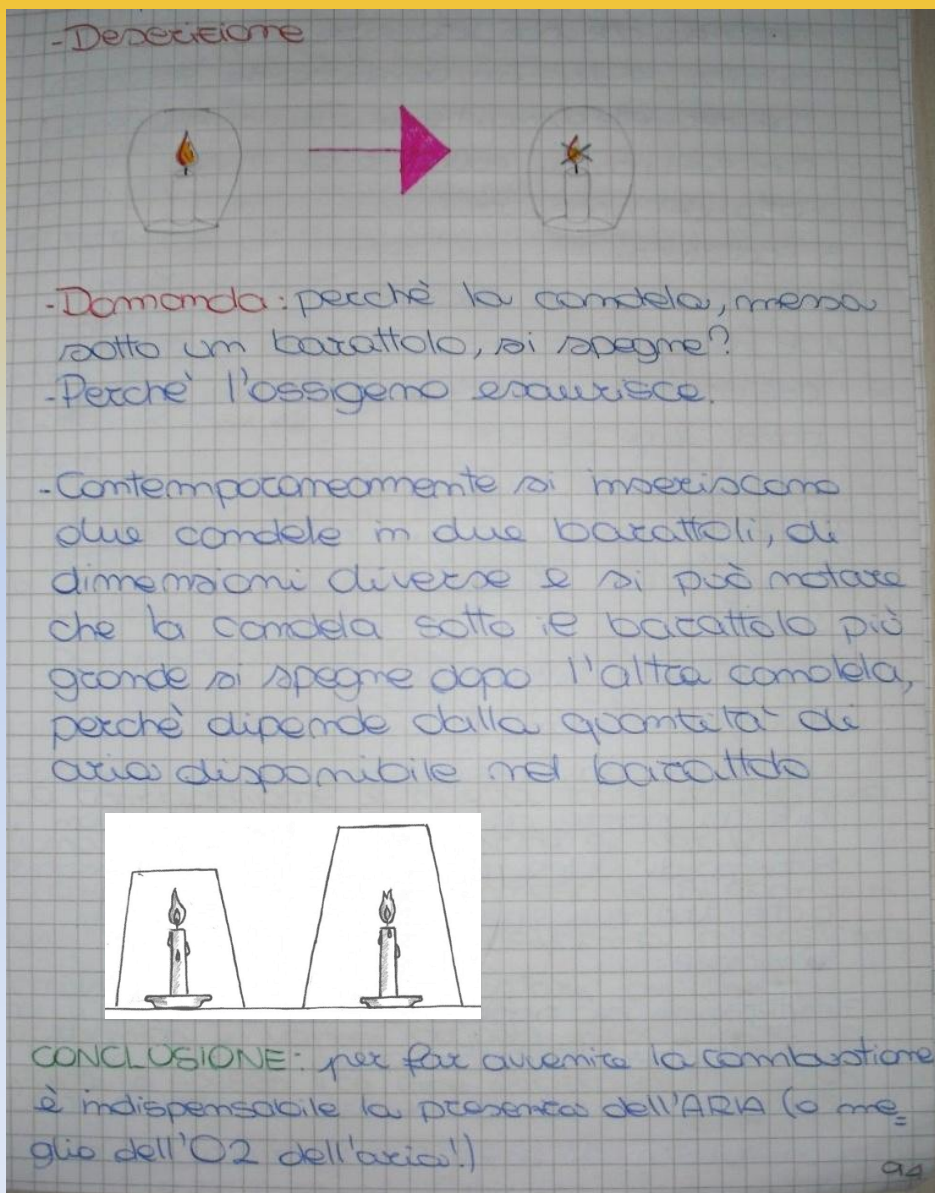 -Descrizione
-Domanda: perchè la candela, messa
sotto un barattolo, si spegne?
-Perchè l'ossigeno esaurisce.
-Contemporaneamente si inseriscono
due candele in due barattoli, di
dimensioni diverse e si può notare
che la candela sotto il barattolo più
grande si spegne dopo l'altra candela,
perchè dipende dalla quantità di
aria disponibile nel barattolo
CONCLUSIONE: per far avvenire la combustione
è indispensabile la presenza dell'ARIA (o me=
glio dell'O2 dell'aria!)